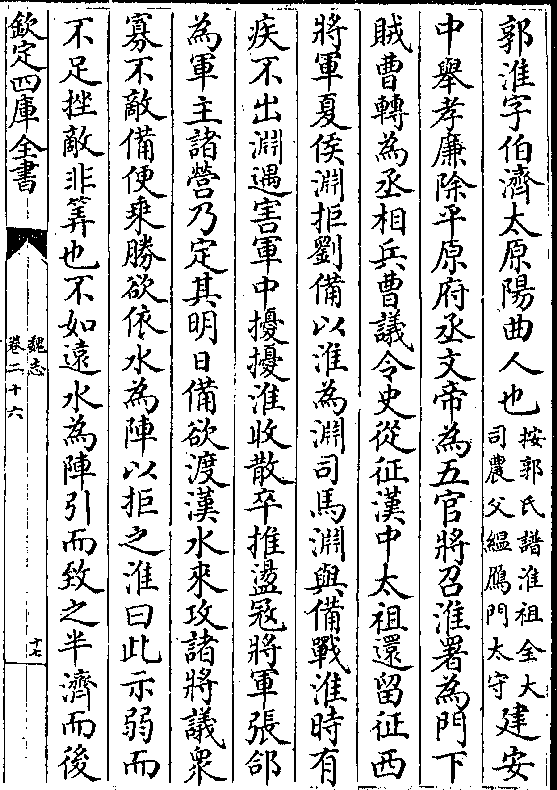 郭淮字伯濟太原陽曲人也按郭氏譜淮祖全大司農父緼鴈門太守建安
中舉孝廉除平原府丞文帝為五官將召淮署為門下
賊曹轉為丞相兵曹議令史從征漢中太祖還留征西
將軍夏侯淵拒劉備以淮為淵司馬淵與備戰淮時有
疾不出淵遇害軍中擾擾淮收散卒推盪冦將軍張郃
為軍主諸營乃定其明日備欲渡漢水來攻諸將議衆
寡不敵備便乗勝欲依水為陣以拒之淮曰此示弱而
不足挫敵非筭也不如逺水為陣引而致之半濟而後
欽定四庫全書
魏志
卷二十六
十七